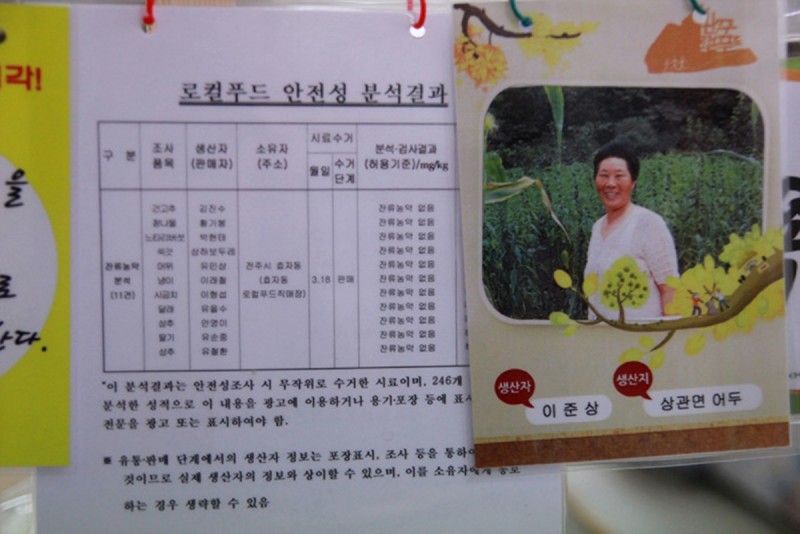 각!
을
로
한다.
로컬푸드 안전성 분석결과
구 분
조사
품목
생산자
(판매자)
소유자
(주소)
시료수거
월일
수거
단계
분석·검사결과
(허용기준)/mg/kg
잔류농약
분석
(11건)
건고추 김진수 잔류농약 없음
콩나물 황기봉 잔류농약 없음
느타리버섯 박현태 잔류농약 없음
쑥갓 상하보두레 잔류농약 없음
머위 유민상 잔류농약 없음
냉이 이래철 잔류농약 없음
시금치 이형섭 잔류농약 없음
달래 유을수 잔류농약 없음
상추 안영이 잔류농약 없음
딸기 유순중 잔류농약 없음
상추 유철환 잔류농약 없음
전주시 효자동
(효자동
로컬푸드직매장)
3.18 판매
"이 분석결과는 안전성조사 시 무작위로 수거한 시료이며, 246개
분석한 성적으로 이 내용을 광고에 이용하거나 용기·포장 등에 표시
전문을 광고 또는 표시하여야 함.
※ 유통·판매 단계에서의 생산자 정보는 포장표시, 조사 등을 통하여
것이므로 실제 생산자의 정보와 상이할 수 있으며, 이를 소유자에게 통보
하는 경우 생략할 수 있음
생산자
이 준 상
생산지
상관면 어두